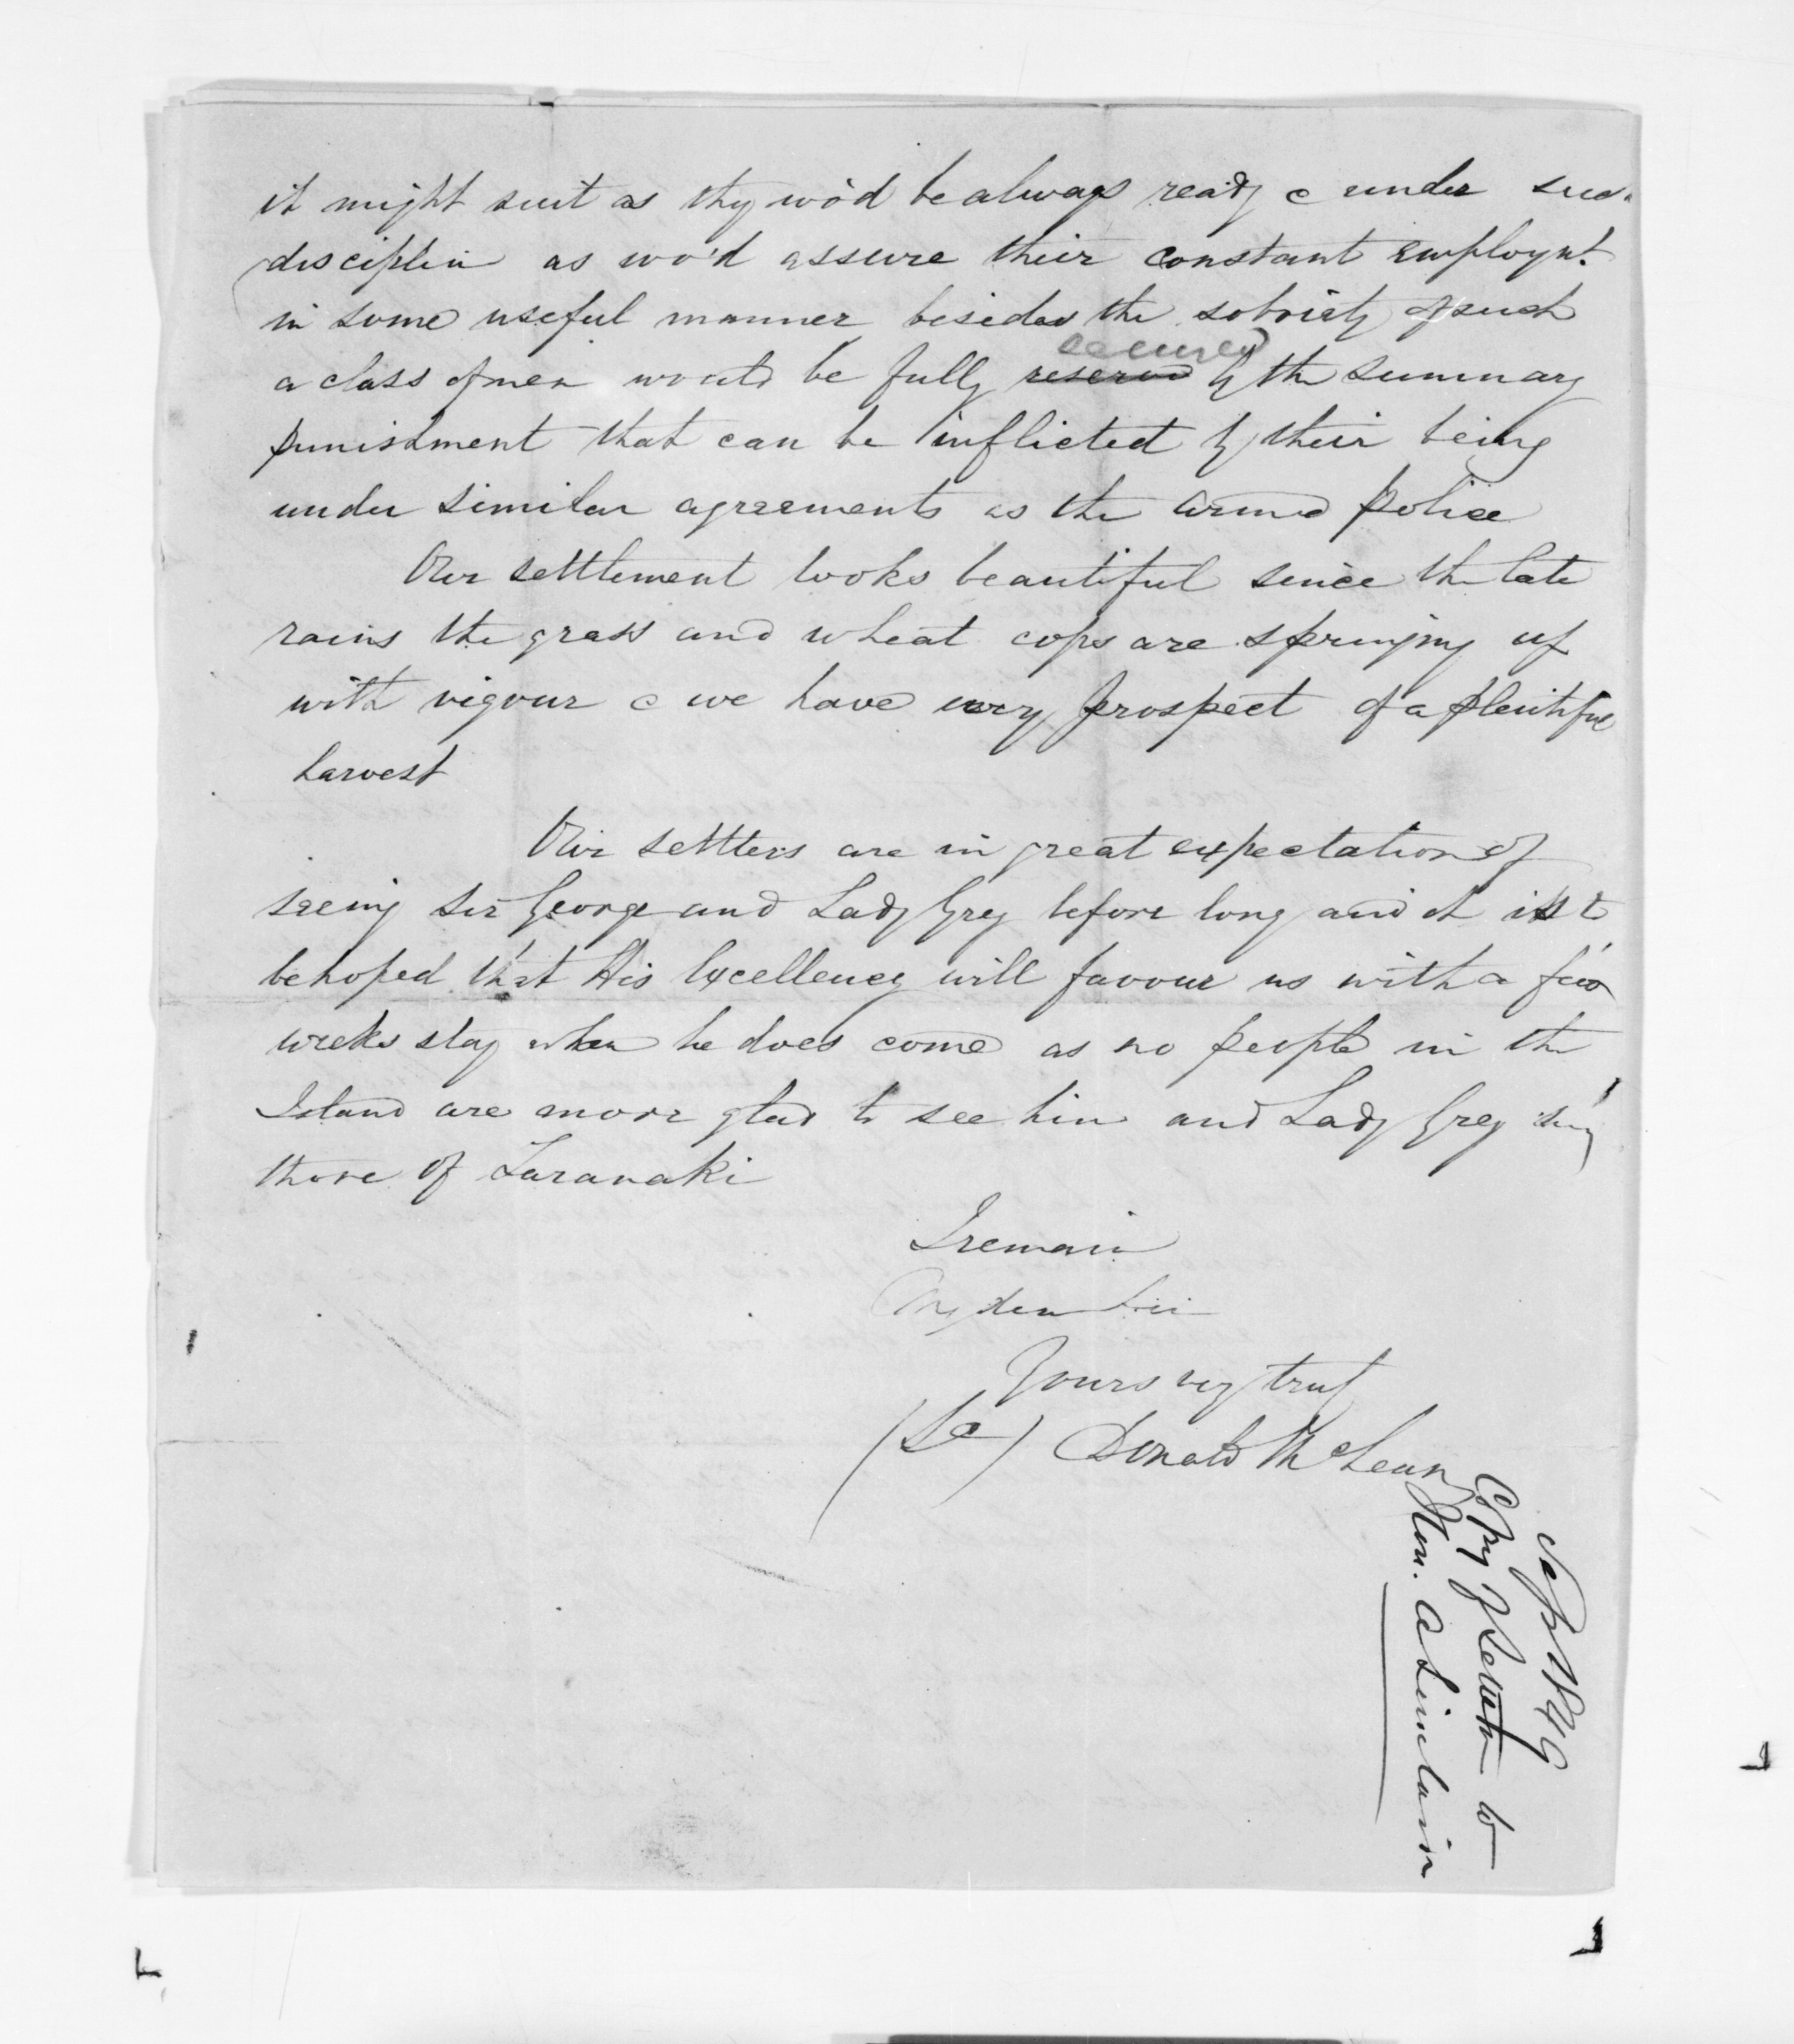 it might suit as they wo'd be always ready & under such
disciplin as wo'd assure their constant employnt.
in some useful manner besides the sobriety of such
a class of men would be fully reserved secured by the summary
punishment that can be inflicted by their being
under similar agreements as the armed police
Our settlement looks beautiful since the late
rains the grass and wheat cops are springing up
with vigour & we have every prospect of a plentiful
harvest
Our settlers are in great expectation of
seeing Sir George and Lady Grey before long and it is to
be hoped that His Excellency will favour us with a few
weeks stay when he does come as no people in the
Island are more glad to see him and Lady Grey than
those of Taranaki
I remain
My dear Sir
Yours very truly
Donald McLean
Copy of Letter to
Hon. A Sinclair